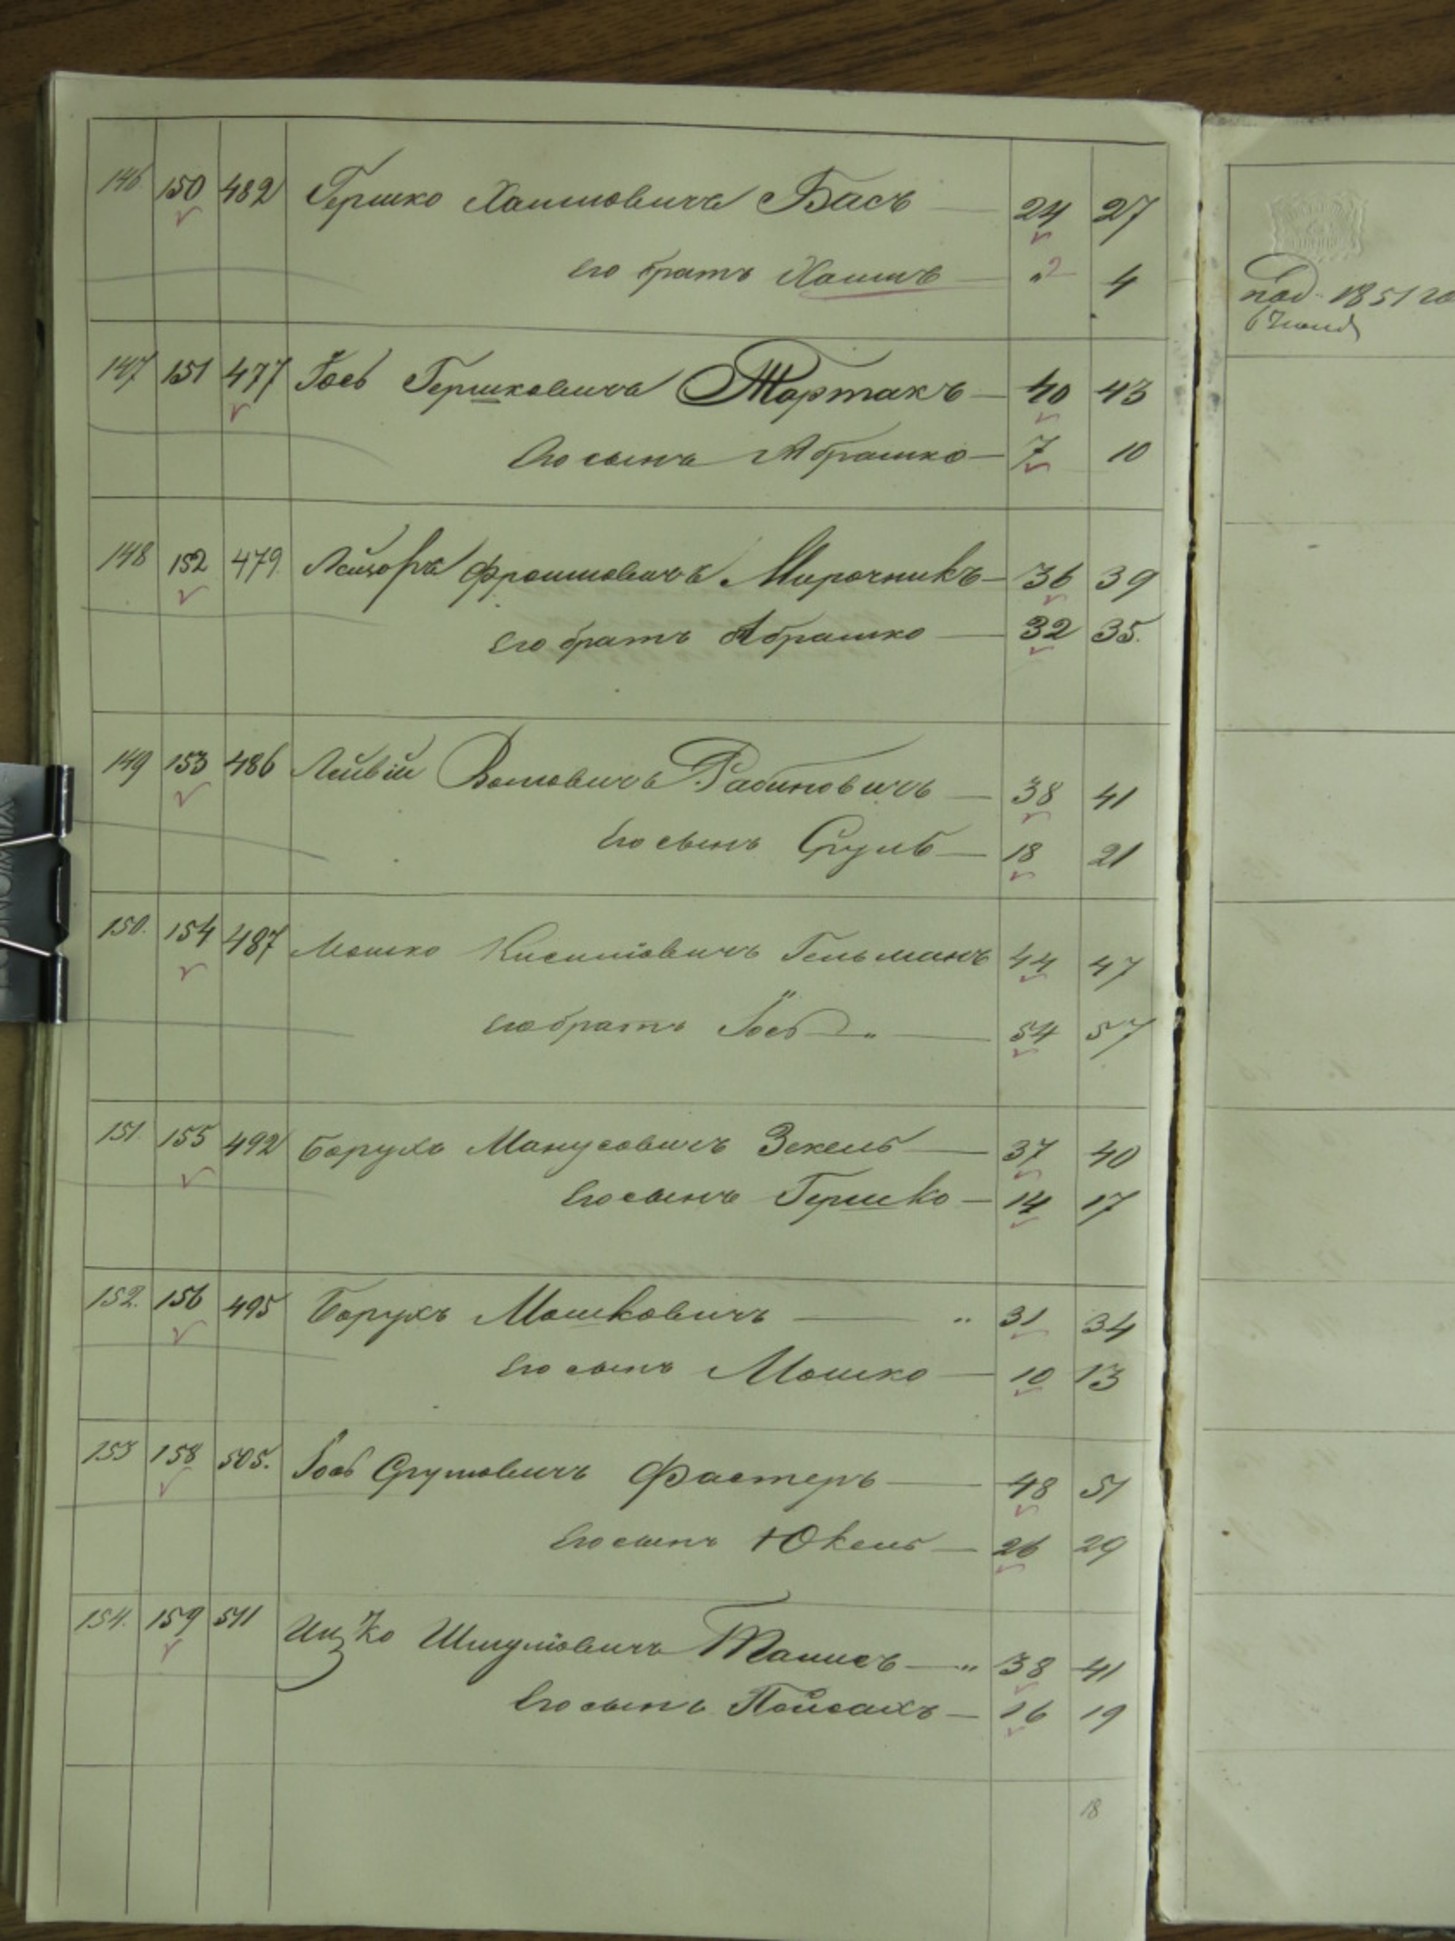 146 150 482 Гершко Хаимовичъ Басъ — 24 27
его братъ Хаимъ — "2 4
под. 1851 го
147 151 477 Іось Гершковичъ Тортакъ — 40 43
Его сынъ Абрашко — 7 10
148 152 479. Лейзоръ Фроимовичъ Мирочникъ — 36 39
Его братъ Абрашко — 32 35.
149 153 486 Лейвій Волковичъ Рабиновичъ — 38 41
Его сынъ Сруль — 18 21
150. 154 487 Мошко Кисиліовичъ Гельманъ 44 47
Его братъ Іось " — 54 57
151. 155 492 Борухъ Манусовичъ Зекель — 37 40
Его сынъ Гершко — 14 17
152. 156 495 Борухъ Мошковичъ — " 31 34
Его сынъ Мошко — 10 13
153 158 505. Іось Сруловичъ Фастеръ — 48 51
Его сынъ Юкель — 26 29
154. 159 511 Ицко Шмуліовичъ — " 38 41
Его сынъ Пейсахъ — 16 19
18